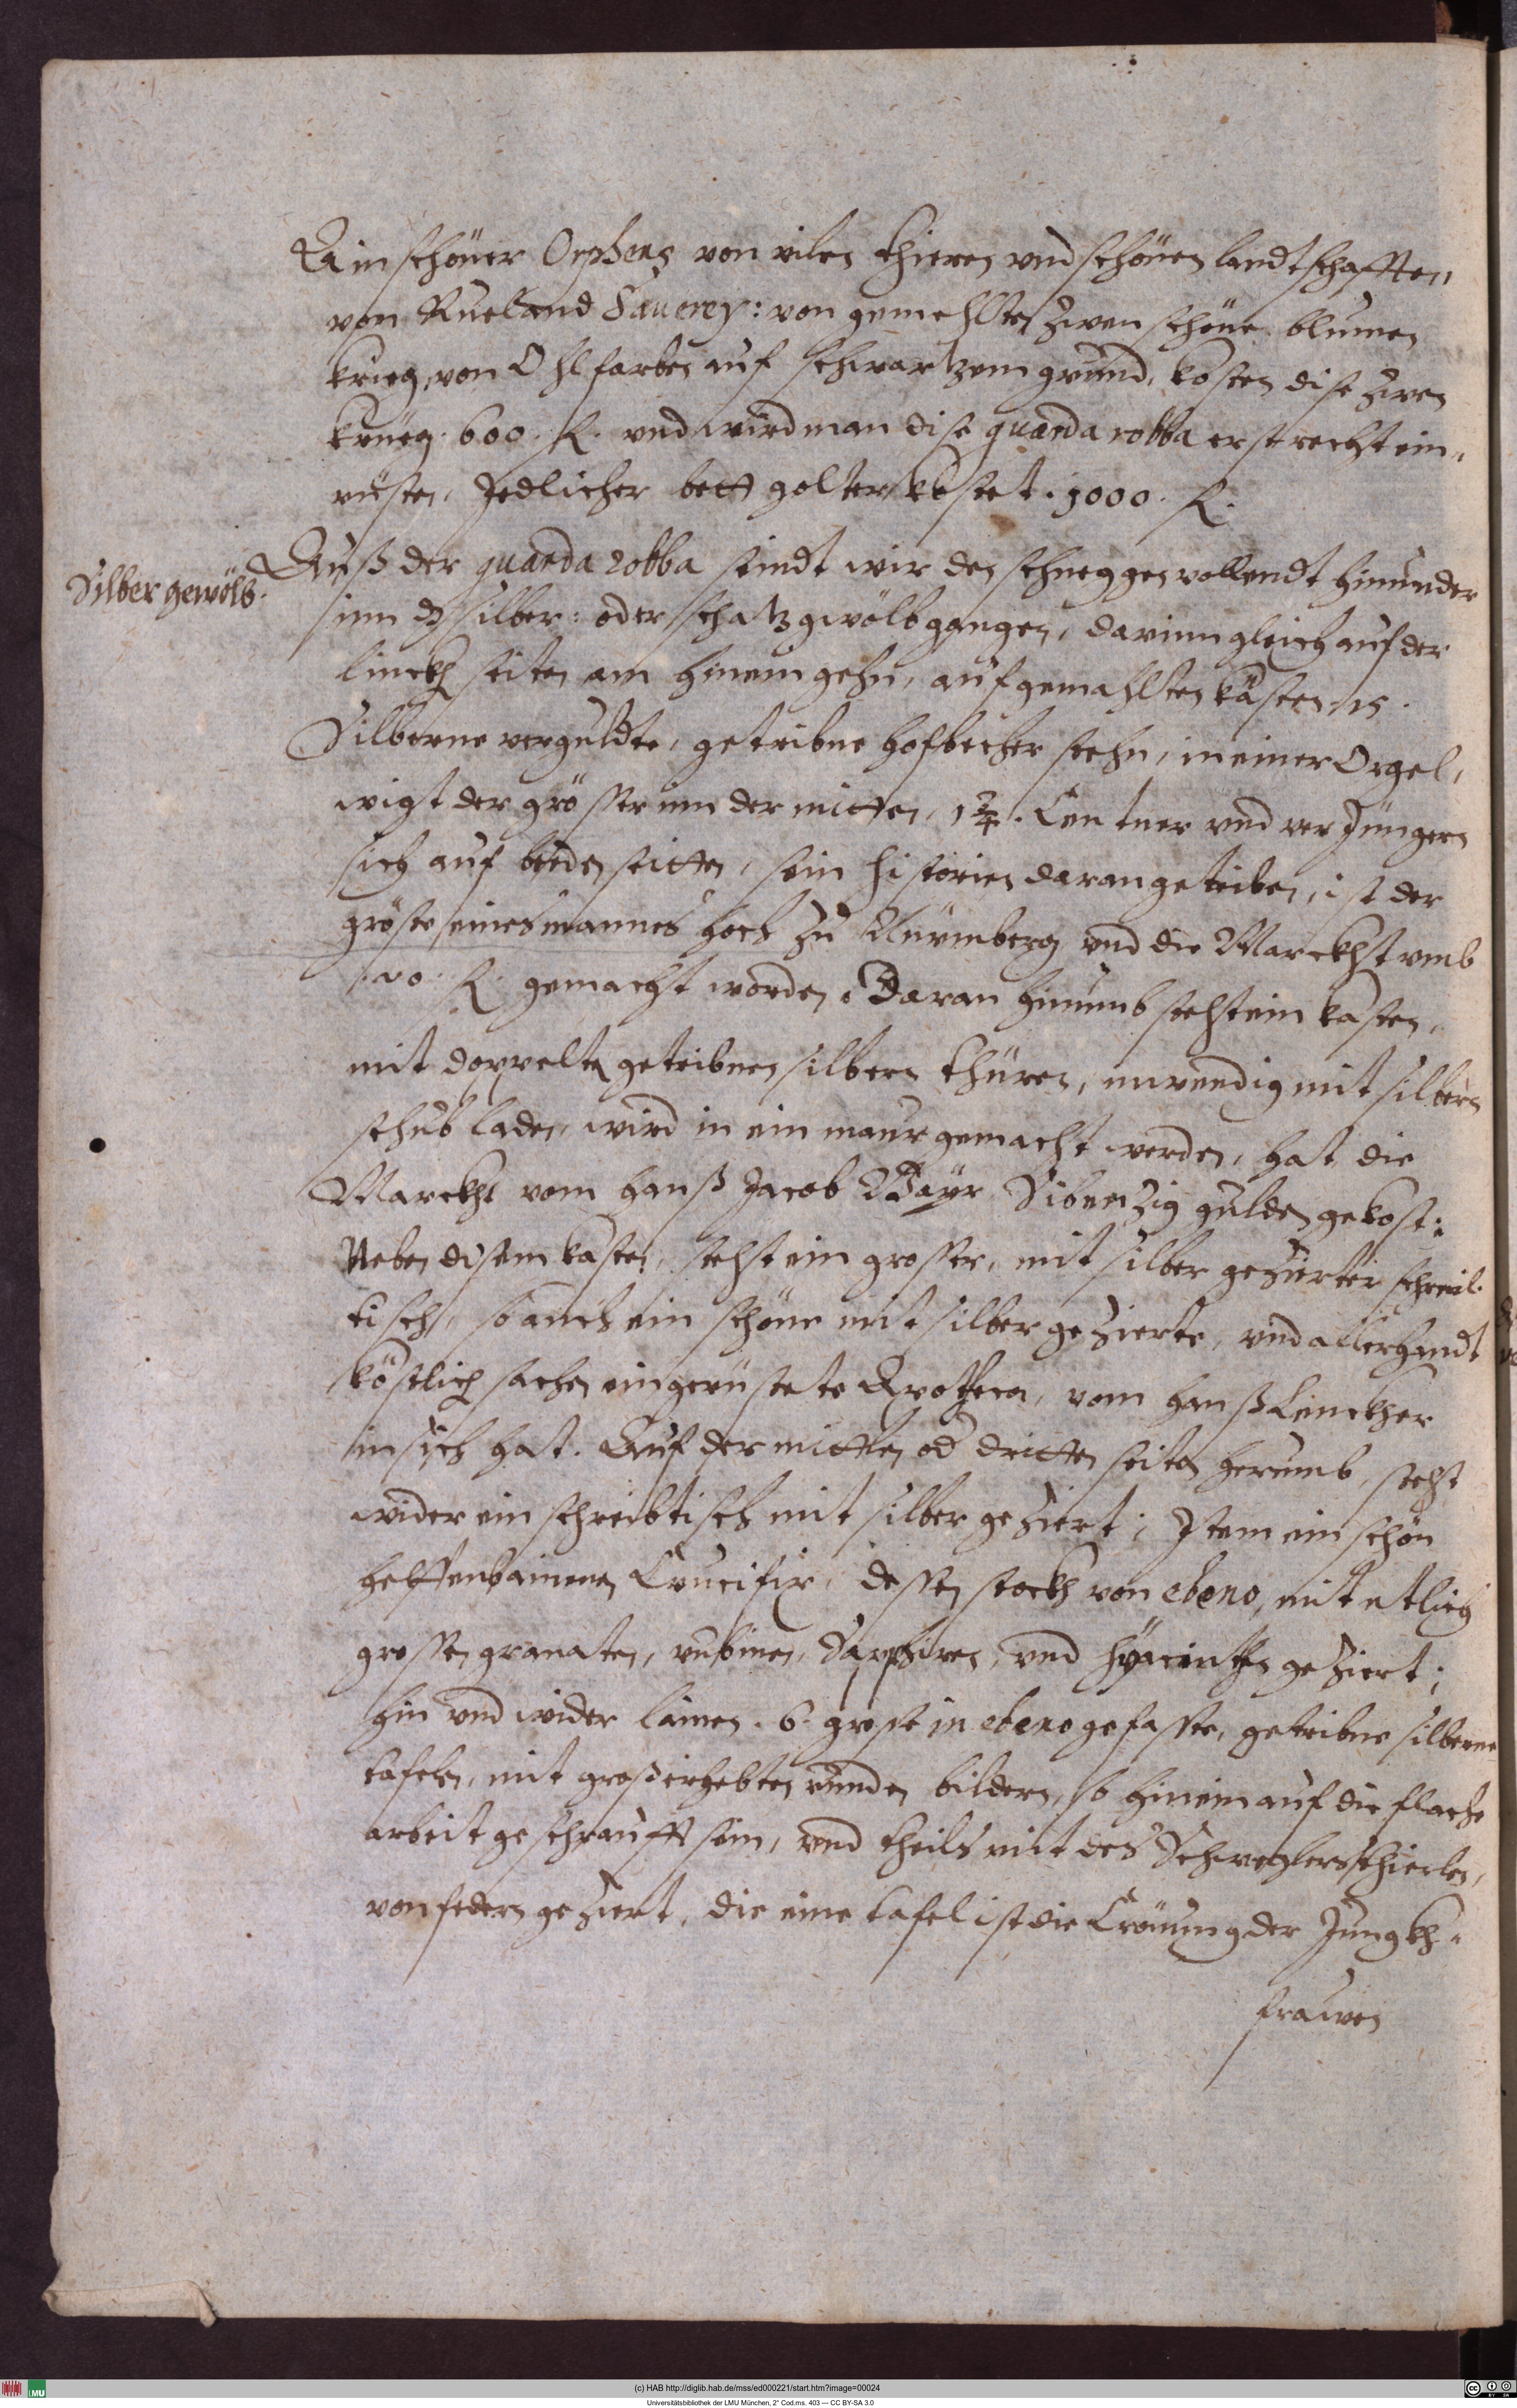 Ein schöner Orpheus von vilen thieren vnd schönen landtschafften,
von Rueland Sauerey: von gemehltes zwen schöne blumen
krieg, von Öhlfarben auf schwartzem grund, kosten dise zwen
krüeg. 600. R. vnd wird man dise guarda robba erst recht ein-
rüsten, Jedlicher bett golter kostet. 1000. R.
Silber gewölb.
Auß der guarda robba seindt wir den schneggen vollendt hinunder
inn dz silber: oder schatzgwölb gangen, darinn gleich auf der
linckh seiten am hineingehn, auf gemahlten kästen 15.
Silberne vergüldte, getribne hofbecher stehn, in einer Orgel,
wigt der grösser inn der mitten, 1¾. Centner vnd verJüngern
sich auf beeden seitten, sein historien daran getriben, ist der
gröste eines mannes hoch zu Nürmberg vnd die Marckht vmb
R. gemacht worden. Daran hinumb steht ein kasten,
mit doppelten getribnen silbern thüren, inwendig mit silbern
schubladen, wird in ein maur gemacht werden, hat die
Marckht vom Hanß Jacob Bayr Sibenzig gulden gekost:
Neben disem kasten, steht ein grosser, mit silber gezierter schreib-
tisch, so auch ein schöne mit silber gezierte, vnd allerhandt
köstlich sachen eingerüstete Apotheca, vom Hanß Lenckher
in sich hat. Auf der mittlen od dritten seiten herumb, steht
wider ein schreibtisch mit silber geziert; Item ein schön
helffenbainenen Crucifix, dessen stockh von ebeno, mit etlich
grossen granaten, rubinen, Sapphiren, vnd Hyacinthen geziert;
hin vnd wider lainen. 6. grosse in ebeno gefasste, getribne silberne
tafeln, mit groß erhebten runden bildern, so hinein auf die flache
arbeit geschraufft sein, vnd theils mit des Schweglers thierlen,
von federn geziert, die eine tafel ist die Crönung der Jungkh-
frawen
(c) HAB http://diglib.hab.de/mss/ed000221/start.htm?image=00024
Universitätsbibliothek der LMU München, 2° Cod.ms. 403 — CC BY-SA 3.0